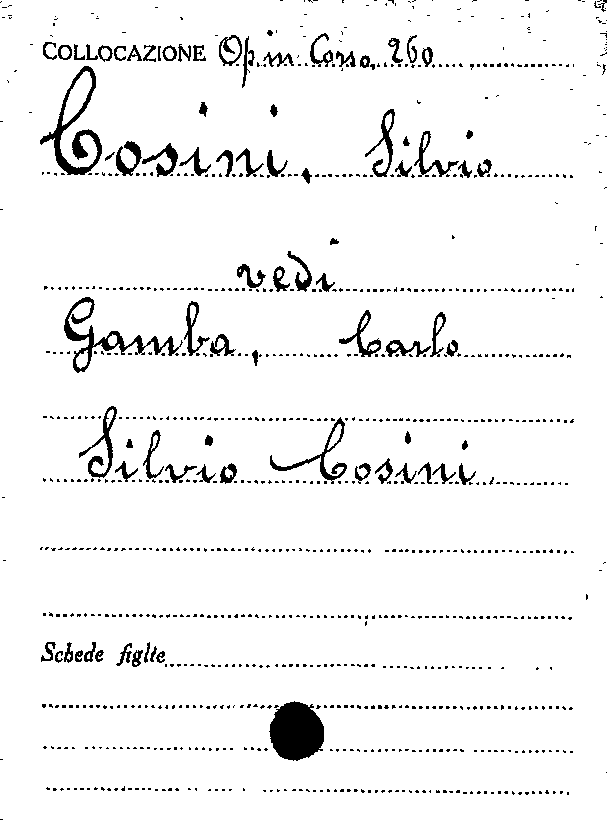 COLLOCAZIONE Op. in Corso, 260
Cosini, Silvio
vedi
Gamba, Carlo
Silvio Cosini.
Schede figlie